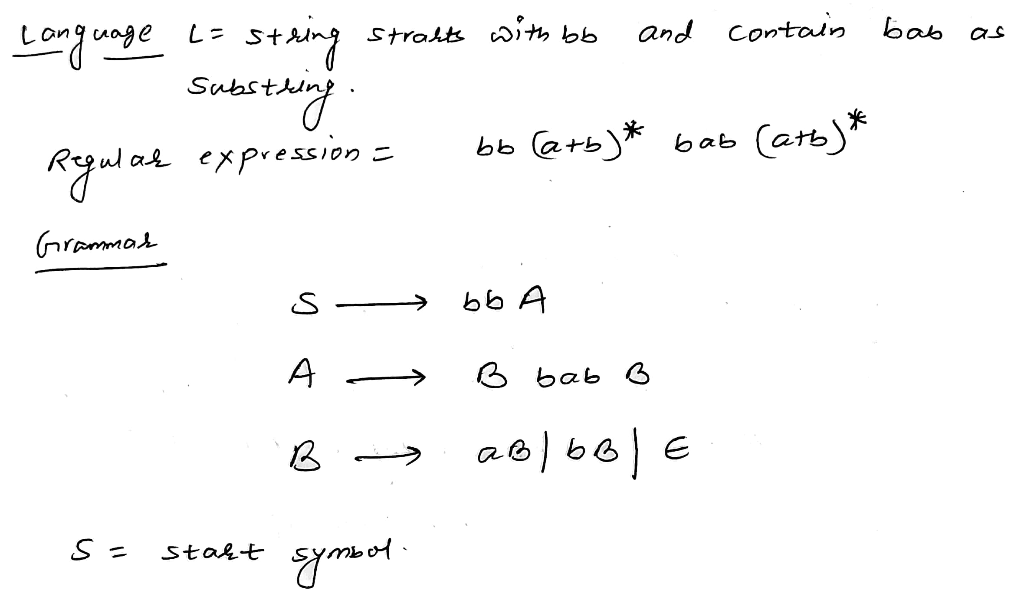 Language L = string straits with bb and contain bab as
substring.
Regular expression = bb (a+b)* bab (a+b)*
Grammar
S → bb A
A → B bab B
B → aB | bB | ∈
S = start symbol.